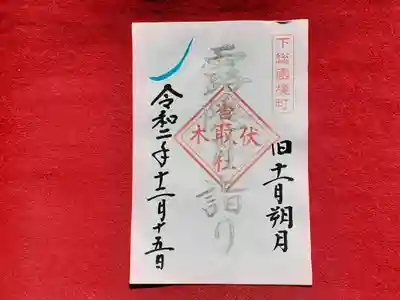 下総國境町
旧十一月朔月
露陰社詣り
香取社
伏木
令和二年十二月十五日